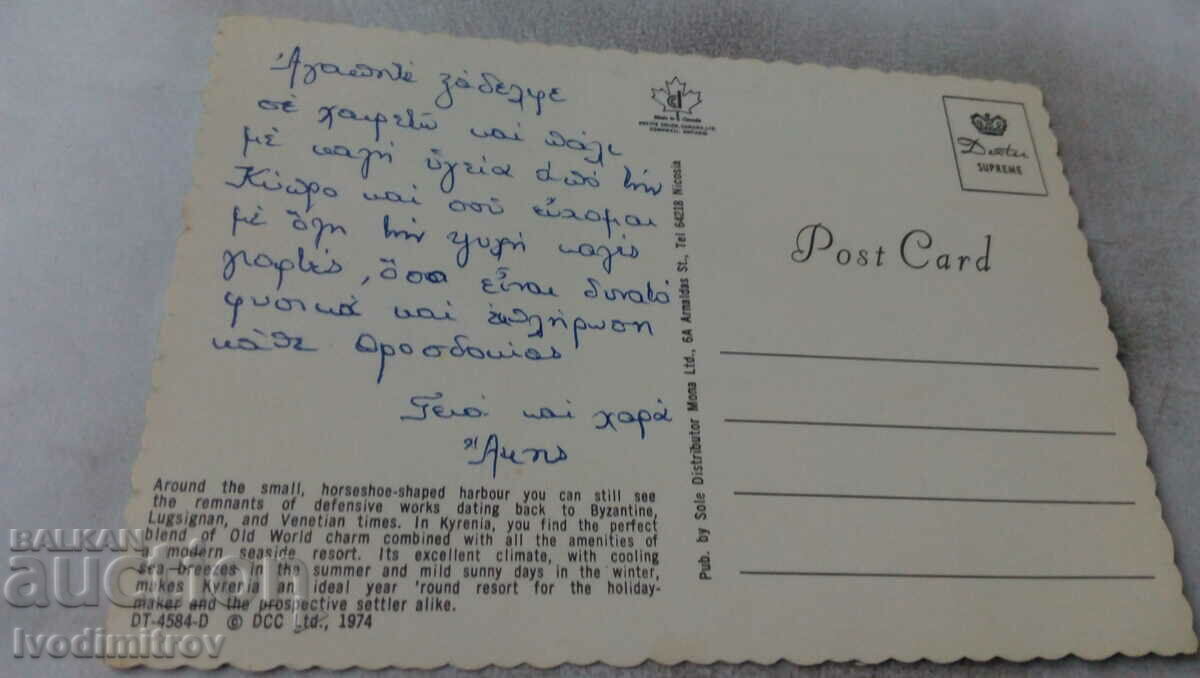 Ἀγαπητέ ξάδελφε
σέ χαιρετῶ καί πάλι
μέ καλή ὑγεία ἀπό τήν
Κύπρο καί σοῦ εὔχομαι
μέ ὅλη τήν ψυχή καλές
γιορτές, ὅσο εἶναι δυνατό
φυσικά καί ἐκπλήρωση
κάθε προσδοκίας
Γειά καί χαρά
Ἄκης
Around the small, horseshoe-shaped harbour you can still see
the remnants of defensive works dating back to Byzantine,
Lugsignan, and Venetian times. In Kyrenia, you find the perfect
blend of Old World charm combined with all the amenities of
a modern seaside resort. Its excellent climate, with cooling
sea-breezes in the summer and mild sunny days in the winter,
makes Kyrenia an ideal year 'round resort for the holiday-
maker and the prospective settler alike.
DT-4584-D © DCC Ltd., 1974
Made in Canada
Pub. by Sole Distributor Mona Ltd., 6A Arnaldas St., Tel 64218 Nicosia
Dexter
SUPREME
Post Card
BALKAN
auction
Ivodimitrov